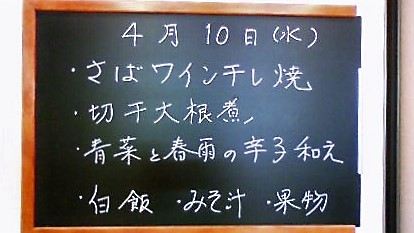 4月10日(水)
・さばワイン干し焼
・切干大根煮
・青菜と春雨の辛子和え
・白飯 ・みそ汁 ・果物